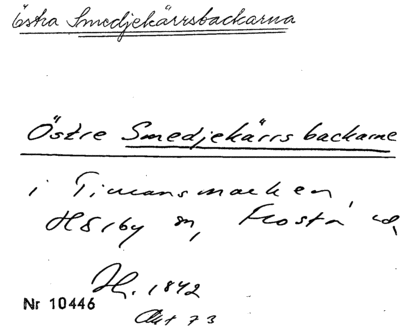 Östra Smedjekärrsbackarna
Östre Smedjekärrsbackarne
i
Hörby sn, Frosta hd,
H. 1842
Nr 10446
Akt 73